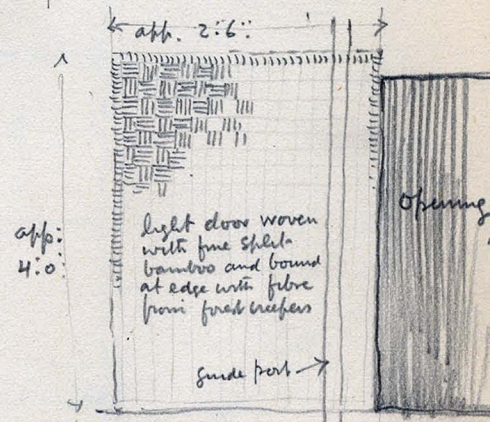 app. 2:6:
Opening
app:
4:0:
light door woven
with fine split
bamboo and bound
at edge with fibre
from forest creepers
guide post